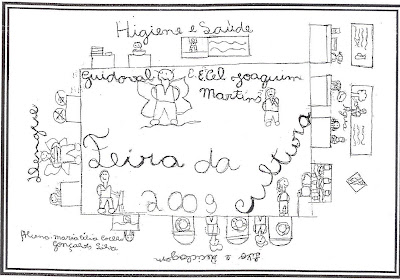 Higiene e Saúde
Guidoval E.E Cel Joaquim
Martins
Dengue
Feira da
Cultura
2009
Água
Lixo e Reciclagem
Aluna: Maria Célia Coelho
Gonçalves Silva